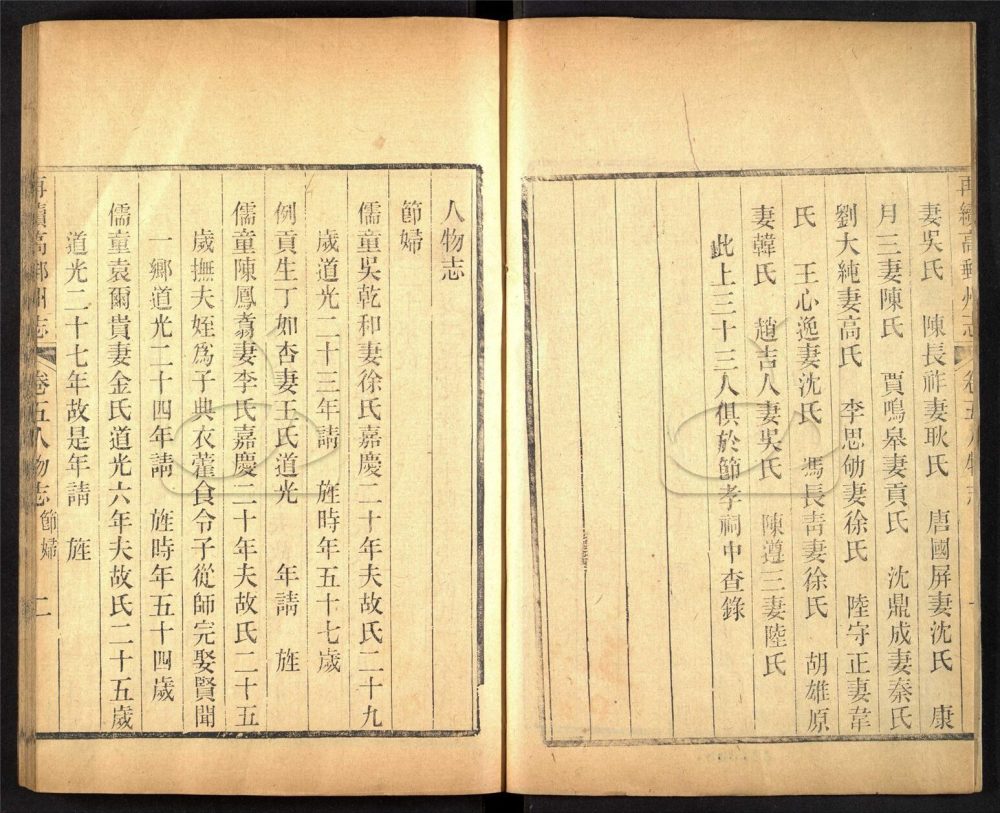 再續高郵州志
妻吳氏 陳長祚妻耿氏 唐國屏妻沈氏 康
月三妻陳氏 賈鳴皋妻貢氏 沈鼎成妻秦氏
劉大純妻高氏 李思劬妻徐氏 陸守正妻韋
氏 王心逸妻沈氏 馮長青妻徐氏 胡雄原
妻韓氏 趙吉人妻吳氏 陳遵三妻陸氏
此上三十三人俱於節孝祠中查錄
人物志
節婦
儒童吳乾和妻徐氏嘉慶二十年夫故氏二十九
歲道光二十三年請 旌時年五十七歲
例貢生丁如杏妻王氏道光 年請 旌
儒童陳鳳翥妻李氏嘉慶二十年夫故氏二十五
歲撫夫姪爲子典衣藿食令子從師完娶賢聞
一鄉道光二十四年請 旌時年五十四歲
儒童袁爾貴妻金氏道光六年夫故氏二十五歲
道光二十七年故是年請 旌
再續高郵州志 卷五人物志 節婦 二